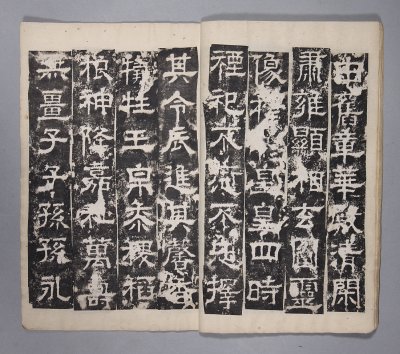 由舊章華殿清閑
肅雍顯相玄圖靈
像穆穆皇皇四時
禋祀不愆不忒擇
其令辰進其馨香
犧牲玉帛黍稷稻
粮神降嘉祉萬壽
無疆子子孫孫永